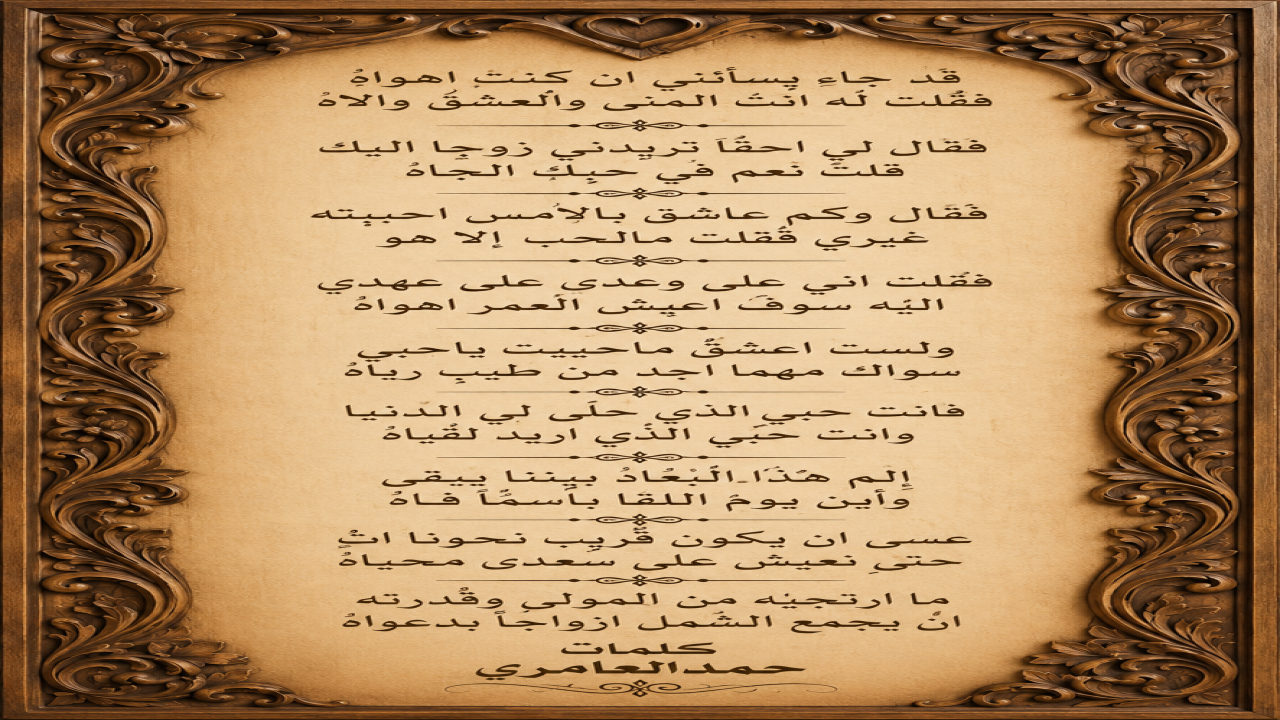 قَد جاءِ يِسأئني ان كنتُ اهواهِ
فقُلت لَه انتُ المنى والعشقُ والاهُ
فقَال لي احقُاَ تريدني زوجا اليك
قلتُ نَعم في حبِك الجاهُ
فَقَال وكم عاشق بالاِمس احببته
غيري قُقلت مالحب إلا هو
فقُلت اني على وعدي على عهدي
اليْه سوفَ اعيِش الَعمر اهواهُ
ولست اعشقُ ماحييت ياحبي
سواك مهما اجد من طيبِ رياهُ
فانت حبي الذي حلَى لي الدنيا
وانت حبَي الذَي اريد لقُياهُ
إِلَم هَذَا الَبْعُادُ بيِننا يبقى
وأين يومُ اللقا بأَسمُاً فاهُ
عسى ان يكون قُريِب نحونا اتٍ
حتىِ نعيش على سُعدى محياهُ
ما ارتجيْه من المولى وقُدرته
انُ يجمع الشَمل ازواجاً بدعواهُ
كلمات
حمدالعامري